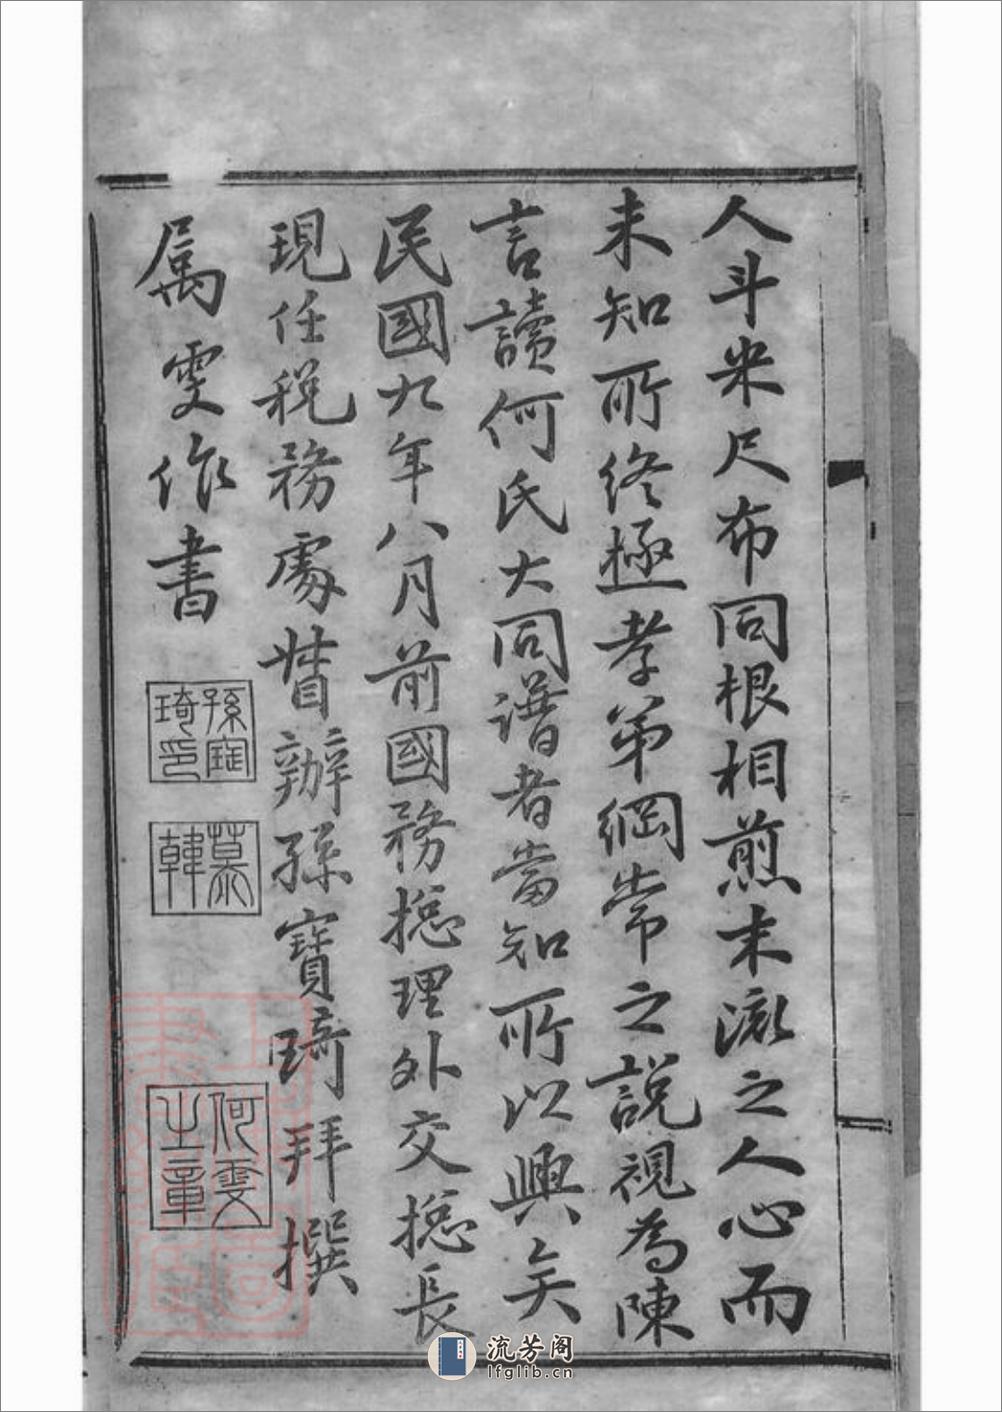 人斗米尺布同根相煎末流之人心而
未知所终極孝弟綱常之說視為陳
言讀何氏大同譜者當知所以興矣
民國九年八月前國務揔理外交揔長
現任税務處督辦孫寶琦拜撰
属雯作書
孫寶琦印
慕韓
何雯之章
流芳阁
lfglib.cn